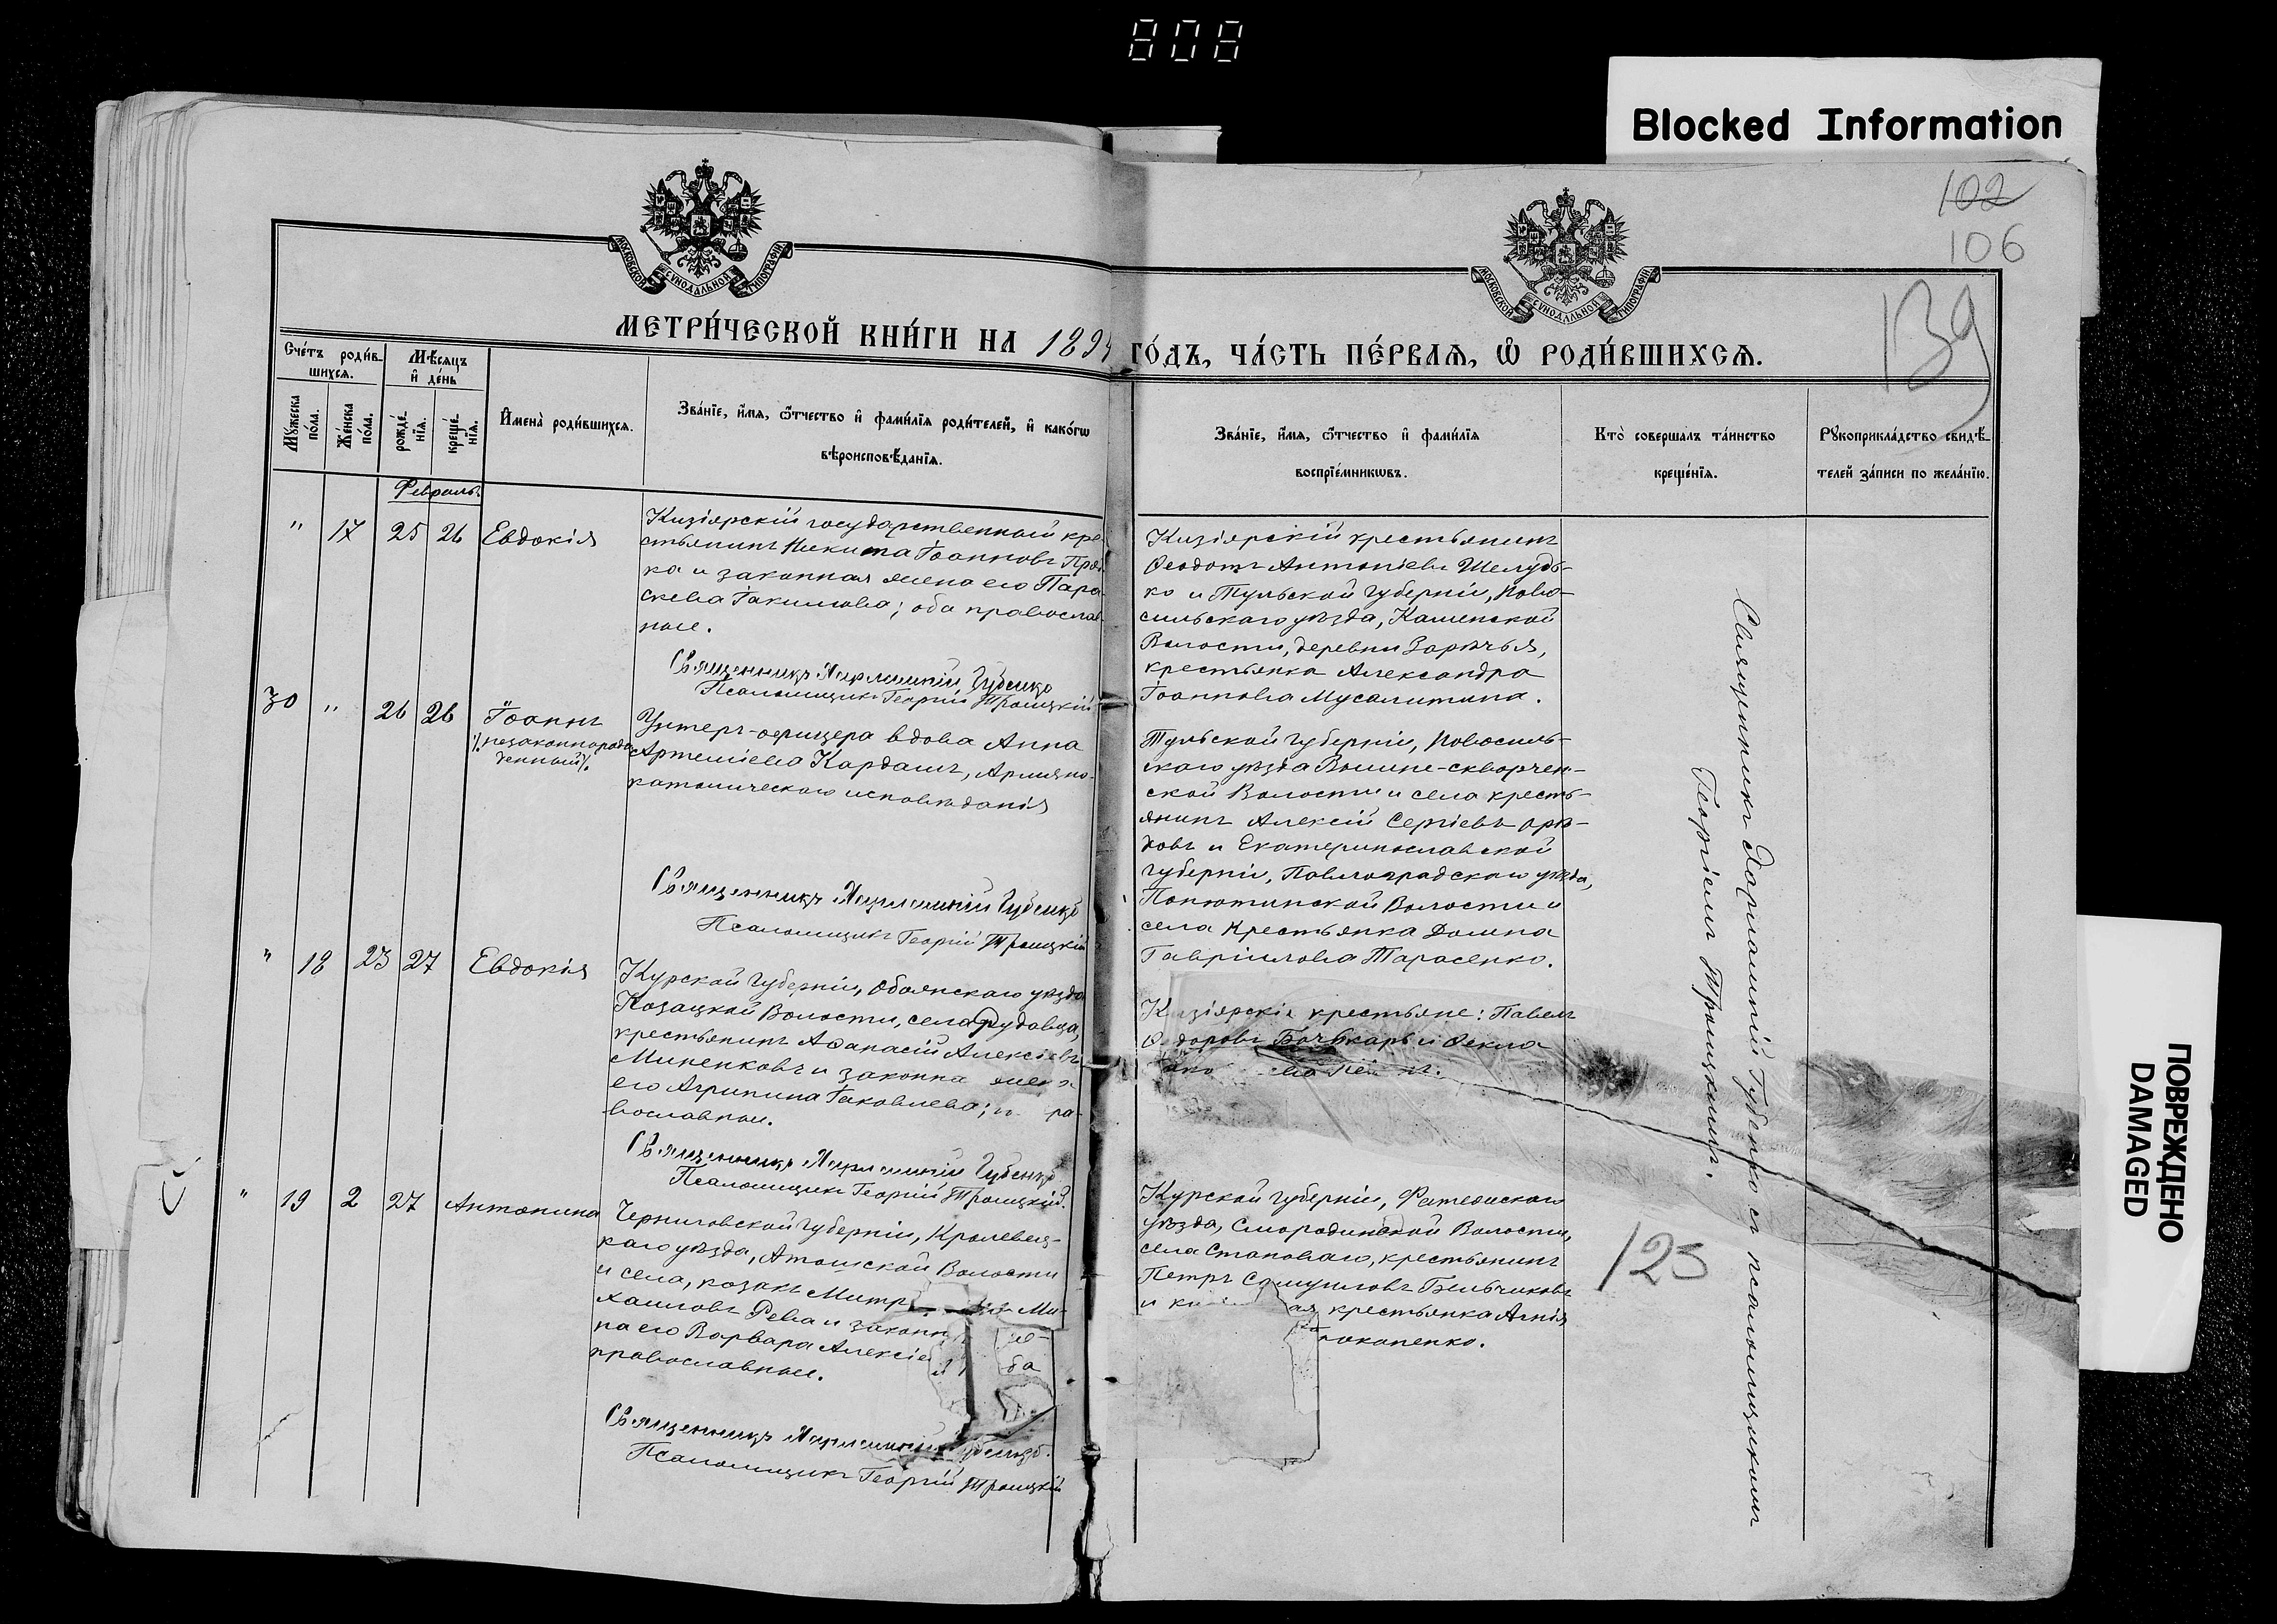 808
Blocked Information
102
106
139
МОСКОВСКОЙ СѴНОДАЛЬНОЙ ТИПОГРАФІИ
МОСКОВСКОЙ СѴНОДАЛЬНОЙ ТИПОГРАФІИ
МЕТРИ́ЧЕСКОЙ КНИ́ГИ НА 189
ГО́ДЪ, ЧА́СТЬ ПЕ́РВАЯ, Ѿ РОДИ́ВШИХСЯ.
Сче́тъ роди́в-
шихся.
Мѣ́сяцъ
и де́нь
Мꙋ́жеска по́ла.
Же́нска по́ла.
рожде́-
нїя.
креще́-
нїя.
И҆мена̀ роди́вшихся.
Зва́нїе, и҆́мя, ѻ҆́тчество и҆ фами́лїя роди́телей, и҆ како́гѡ
вѣроисповѣ́данїя.
Зва́нїе, и҆́мя, ѻ҆́тчество и҆ фами́лїя
воспрїе́мникѡвъ.
Кто̀ соверша́лъ та́инство
креще́нїя.
Рꙋкоприкла́дство свидѣ́-
телей за́писи по жела́нїю.
Февраль
" 17 25 26 Евдокія
Кизіярскій государственный кре-
стьянинъ Никита Іоанновъ
ка и законная жена его Пара
скева Іакимова; оба православ
ные.
Священникъ Харлампій Губенко
Псаломщикъ Георгій Троицкій
Кизіярскій крестьянинъ
Ѳеодотъ Антоніевъ Шелудь-
ко и Тульской губерніи, Ново-
сильскаго уѣзда, Каменской
Волости, деревни Зарѣчья,
крестьянка Александра
Іоаннова Мусалитина.
30 " 26 26 Іоаннъ
незаконнорож
денный
Унтеръ-офицера вдова Анна
Артеміева Кардашъ, Армяно-
католическаго исповѣданія
Священникъ Харлампій Губенко
Псаломщикъ Георгій Троицкій
Тульской губерніи, Новосиль-
скаго уѣзда Вышне-скворчен-
ской Волости и села кресть-
янинъ Алексій Сергіевъ Орѣ-
ховъ и Екатеринославской
губерніи, Павлоградскаго уѣзда,
Попютинской Волости и
села Крестьянка Домна
Гавріилова Тарасенко.
" 18 23 27 Евдокія
Курской губерніи, Обоянскаго уѣзда
Козацкой Волости, села Рудавца,
крестьянинъ Аѳанасій Алексіевъ
Миненковъ и законна жена
его Агрипина Іаковлева;
вославные.
Священникъ Харлампій Губенко
Псаломщикъ Георгій Троицкій.
Кизіярскіе крестьяне: Павелъ
Ѳ доровъ Бочькарь и Ѳекла
" 19 2 27 Антонина
Черниговской губерніи, Кролевец-
каго уѣзда, Атюшской Волости
и села, козакъ Митр Ми-
хаиловъ Рева и законн же-
на его Варвара Алексіе ба
православные.
Священникъ Харлампій Губенко.
Псаломщикъ Георгій Троицкій
Курской губерніи, Фатежскаго
уѣзда, Смородинской Волости,
села Становаго, крестьянинъ
Петръ Самуиловъ Бельчиковъ
и крестьянка Агнія
окопенко.
Священникъ Харлампій Губенко съ псаломщикомъ
Георгіемъ Троицкимъ.
125
ПОВРЕЖДЕНО
DAMAGED